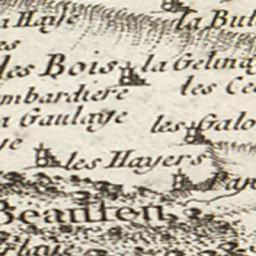 la Haye
la But
les Bois
la Gelina
mbardiere
les Ce
a Gaulaye
les Galo
les Hayers
Beauten